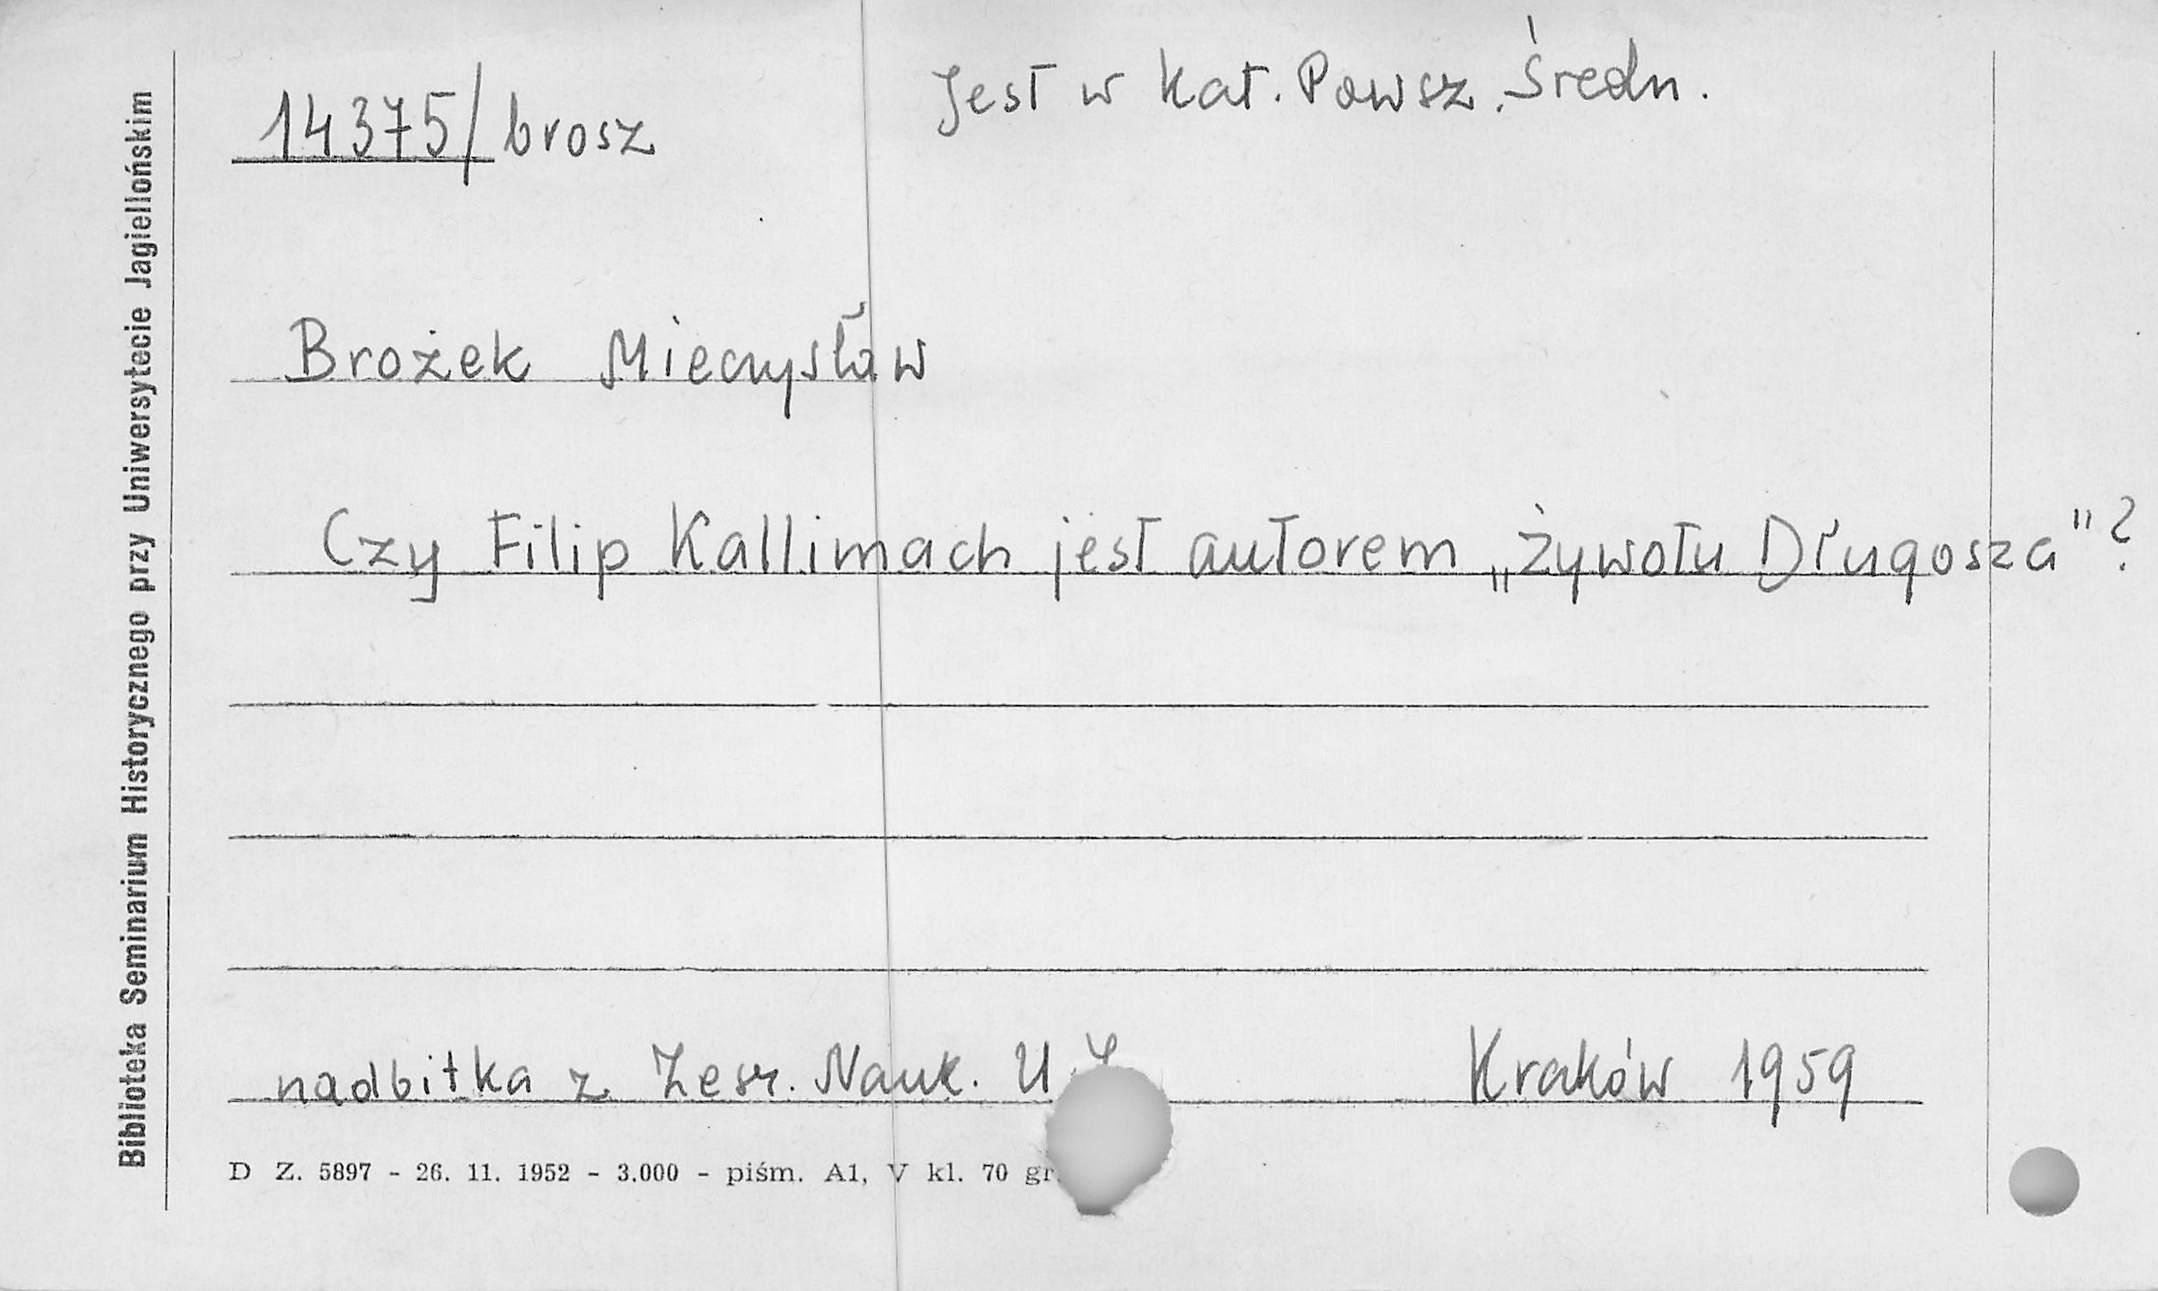 Biblioteka Seminarium Historycznego przy Uniwersytecie Jagiellońskim
14375/brosz
Jest w Kat. Powsz. Średn.
Brożek Mieczysław
Czy Filip Kallimach jest autorem „Żywotu Długosza"?
nadbitka z Zesz. Nauk. U.J Kraków 1959
D Z. 5897 - 26. 11. 1952 - 3.000 - piśm. A1, V kl. 70 gr.